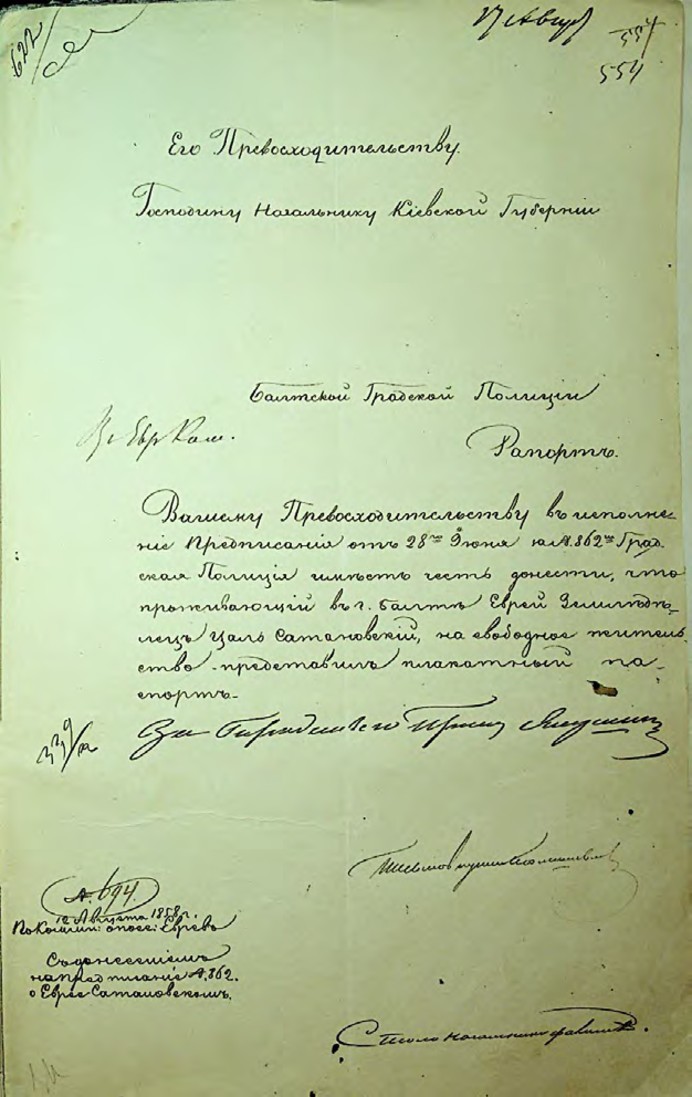 622
17 Авгус
554
554
Его Превосходительству.
Господину Начальнику Кіевской Губерніи
Балтской Градской Полиціи
Рапортъ.
Вашему Превосходительству въ исполне-
ніе Предписанія отъ 28го Іюня за №. 862мъ Град-
ская Полиція имѣетъ честь донести, что
проживающій въ г. Балтѣ Еврей Земледѣ-
лецъ Цаль Сатановскій, на свободное житель-
ство представилъ плакатный па-
спортъ.
За
339
№. 694.
12 Августа 1858 г.
По Комит: о посе: Евреевъ
Съ донесеніемъ
на предписаніе №. 862.
о Евреѣ Сатановскомъ.
Столоначальникъ